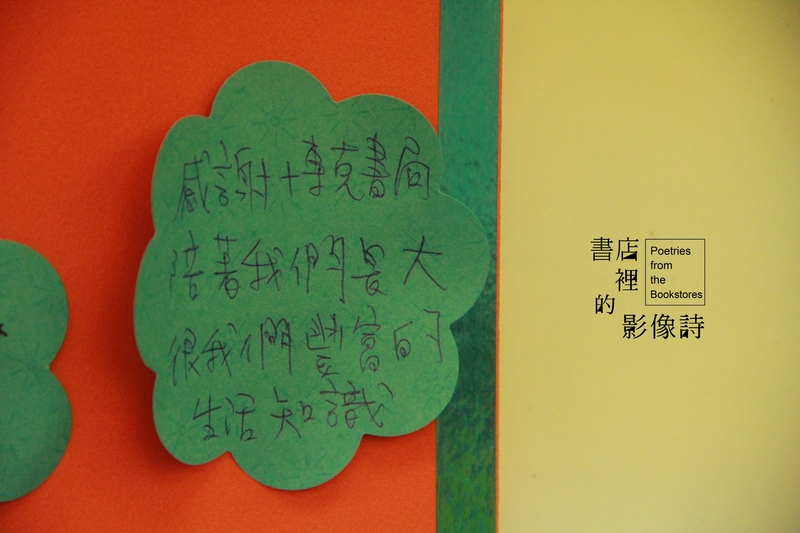 感謝博克書局
陪著我們長大
很我們豐富的
生活知識
書店
裡
的
影像詩
Poetries
from
the
Bookstores